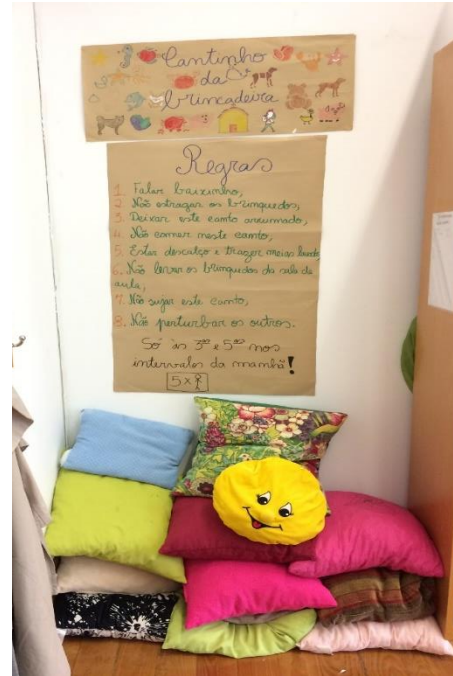 Cantinho
da
brincadeira
Regras
1. Falar baixinho;
2. Não estragar os brinquedos;
3. Deixar este canto arrumado;
4. Não comer neste canto;
5. Estar descalço e trazer meias
6. Não levar os brinquedos da sala de
aula;
7. Não sujar este canto;
8. Não perturbar os outros.
Só às 3ªs e 5ªs nos
intervalos da manhã!
5 x